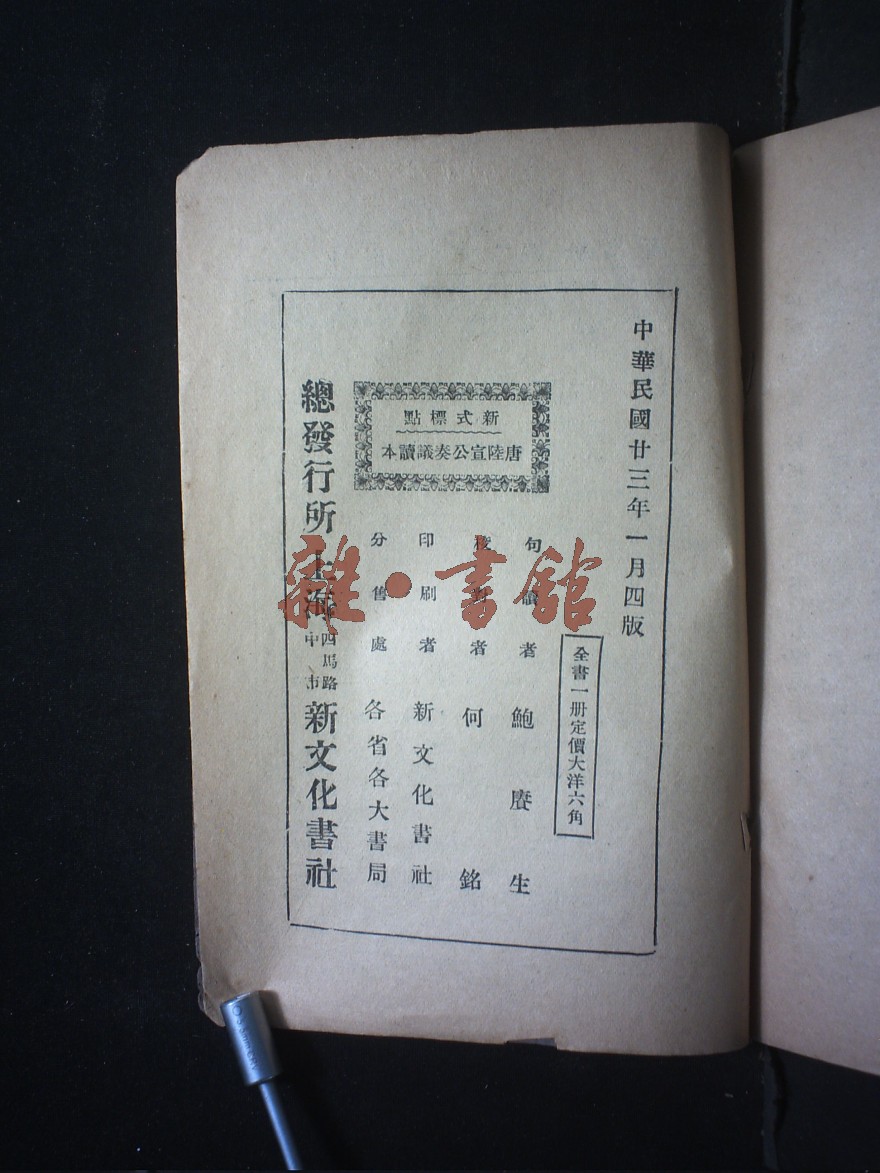 中華民國廿三年一月四版
全書一册定價大洋六角
新式標點
唐陸宣公奏議讀本
句讀者 鮑賡生
校對者 何銘
印刷者 新文化書社
分售處 各省各大書局
總發行所 上海 四馬路中市 新文化書社
雜·書館